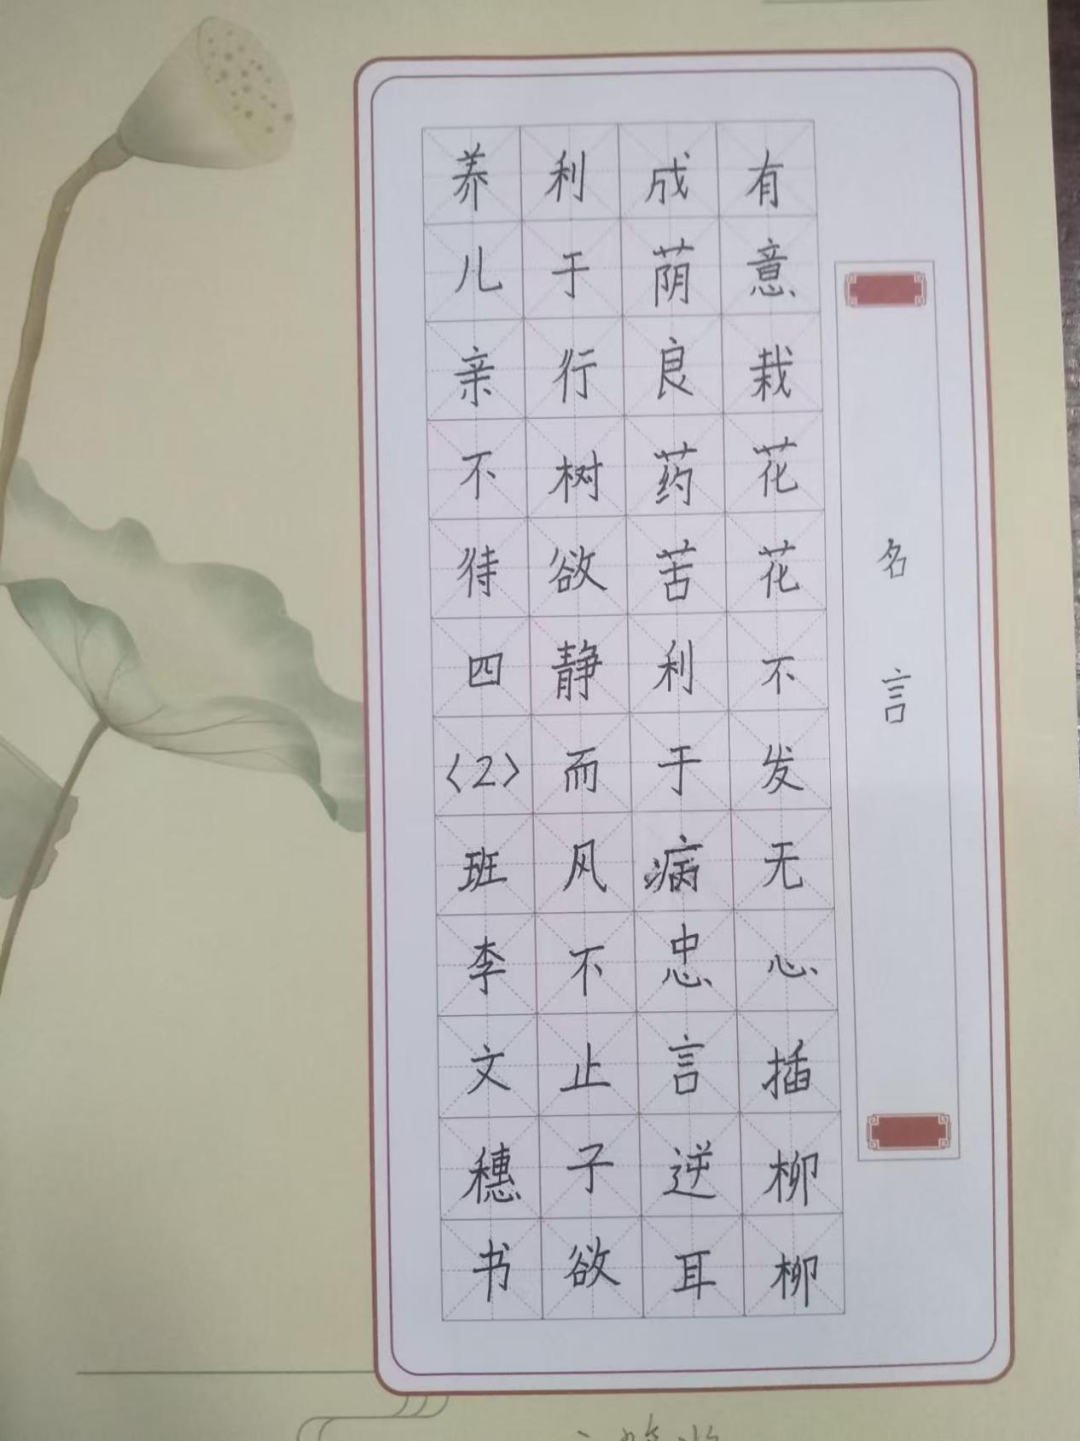 名言
有意栽花花不发无心插柳柳
成荫良药苦利于病忠言逆耳
利于行树欲静而风不止子欲
养儿亲不待四〈2〉班李文穗书